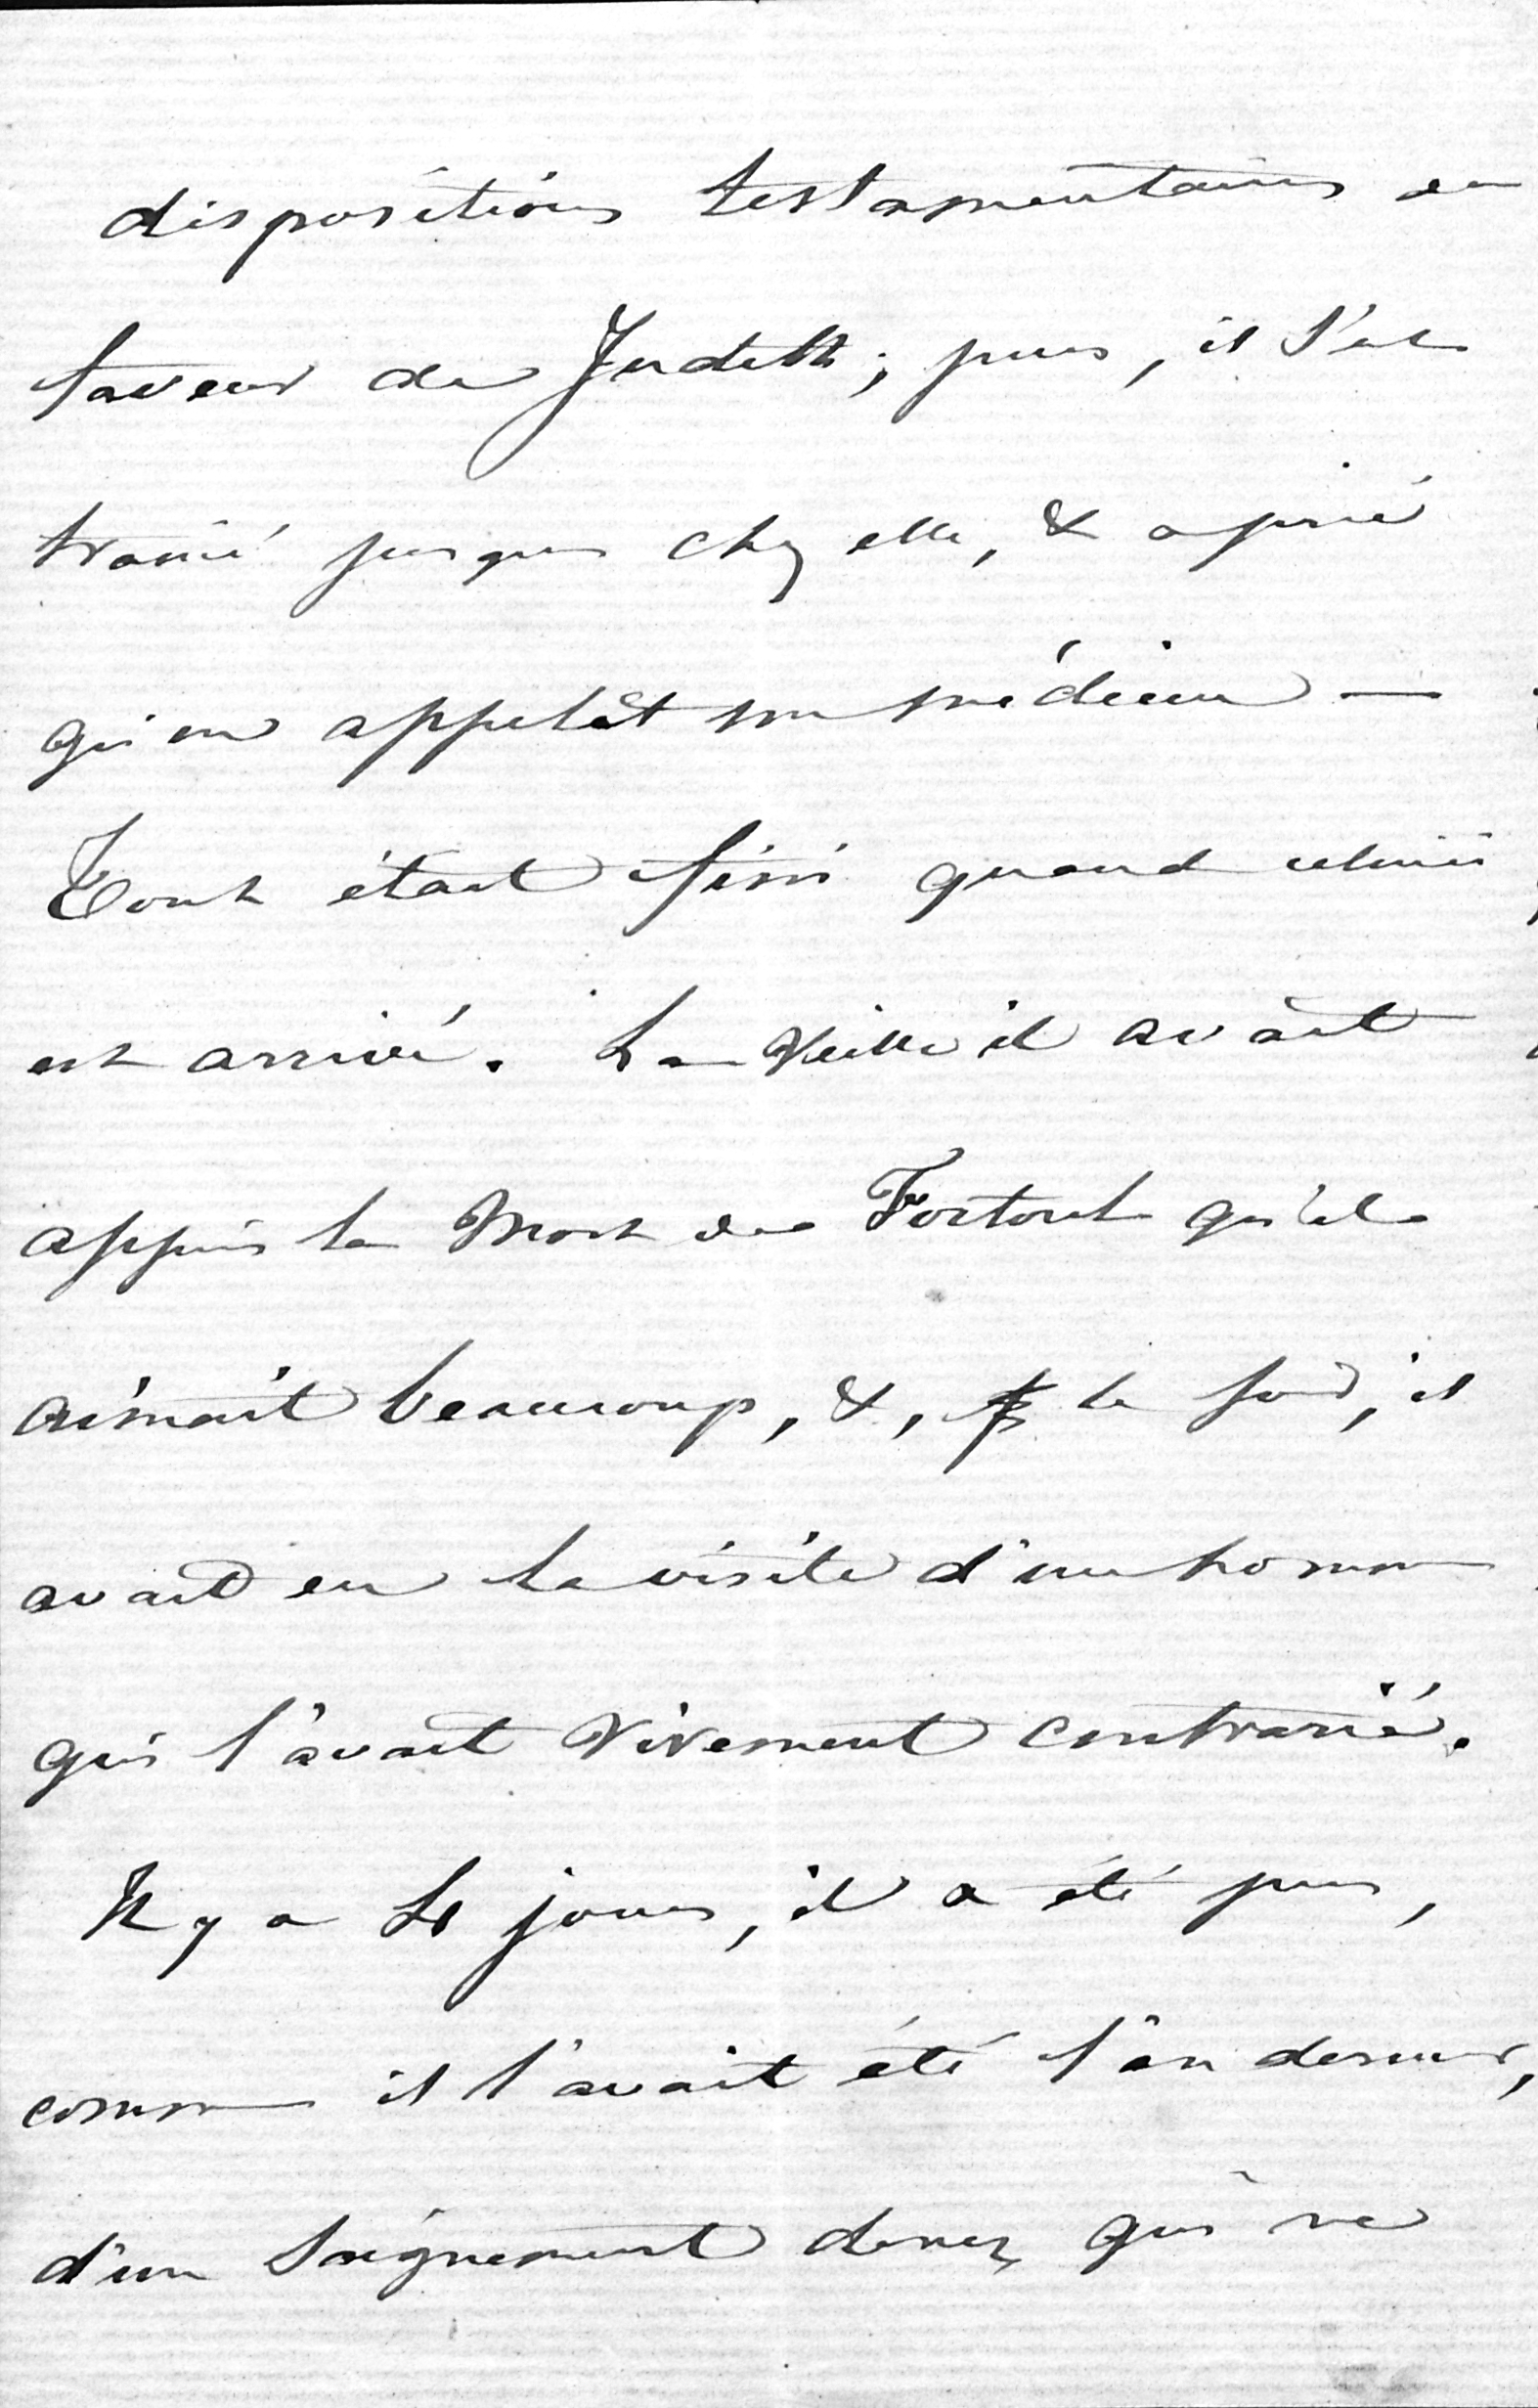 dispositions testamentaires en
faveur de Judith ; puis, il s'est
trainé jusques chez elle, & a prié
qu'on appelât un médecin —
Tout était fini quand celui ci
est arrivé. La Veille il avait
appris la Mort de Fortoul qu'il
aimait beaucoup, &, le soir, il
avait eu la visite d'un homme
qui l'avait Vivement contrarié.
Il y a jours, il a été pris,
comme il l'avait été l'an dernier,
d'un Saignement de nez qui ne